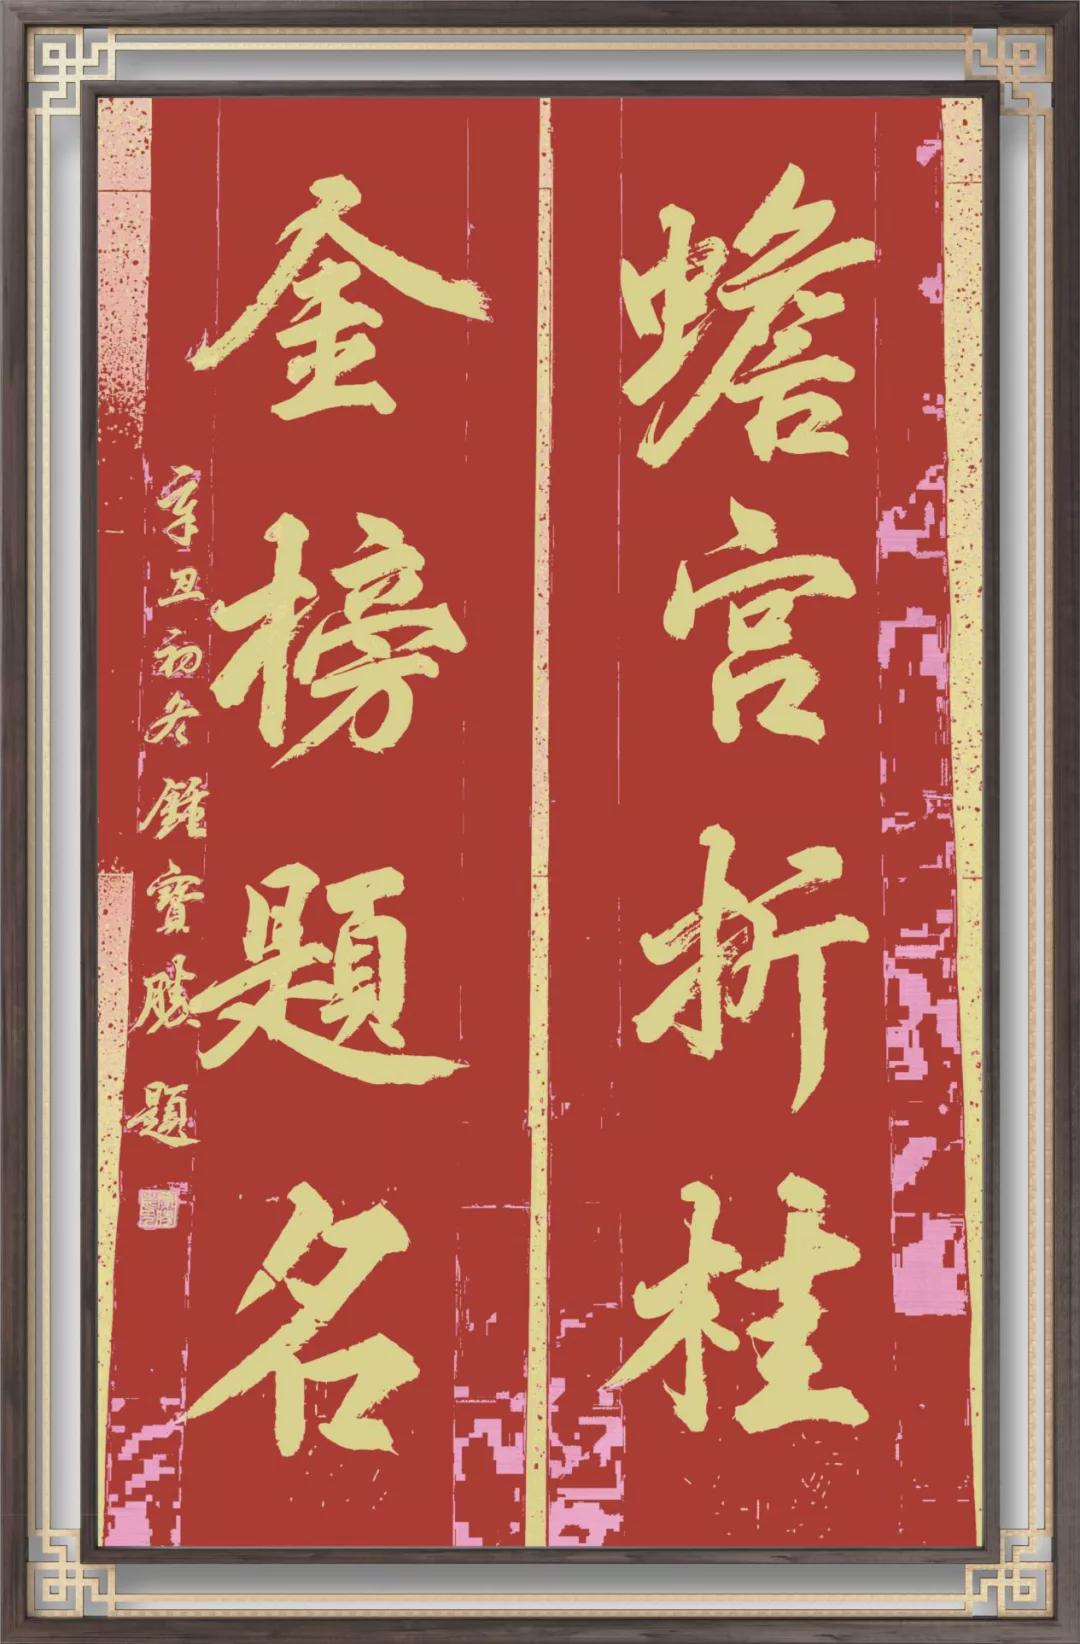 蟾宫折桂
金榜題名
辛丑初冬鍾寶勝題